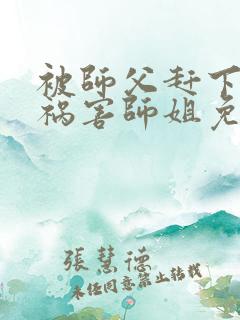 被師父赶下
祸害師姐免
張慧德
未经同意禁止转载